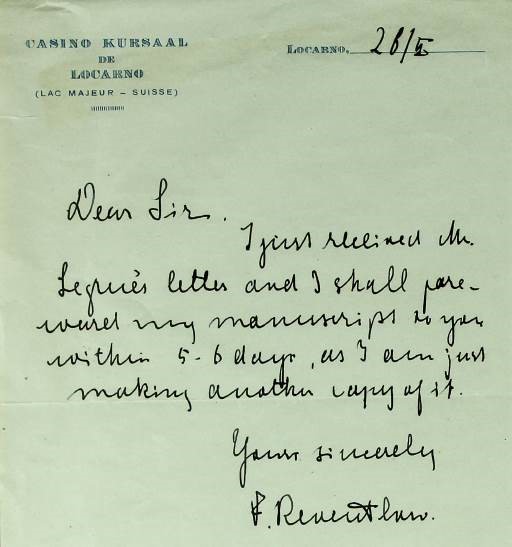 CASINO KURSAAL
DE
LOCARNO
(LAC MAJEUR – SUISSE)
LOCARNO, 26/5
Dear Sir.
I just received Mr.
letter and I shall fore-
ward my manuscript to you
within 5-6 days, as I am just
making another copy of it.
Yours sincerely
F. Reventlow.